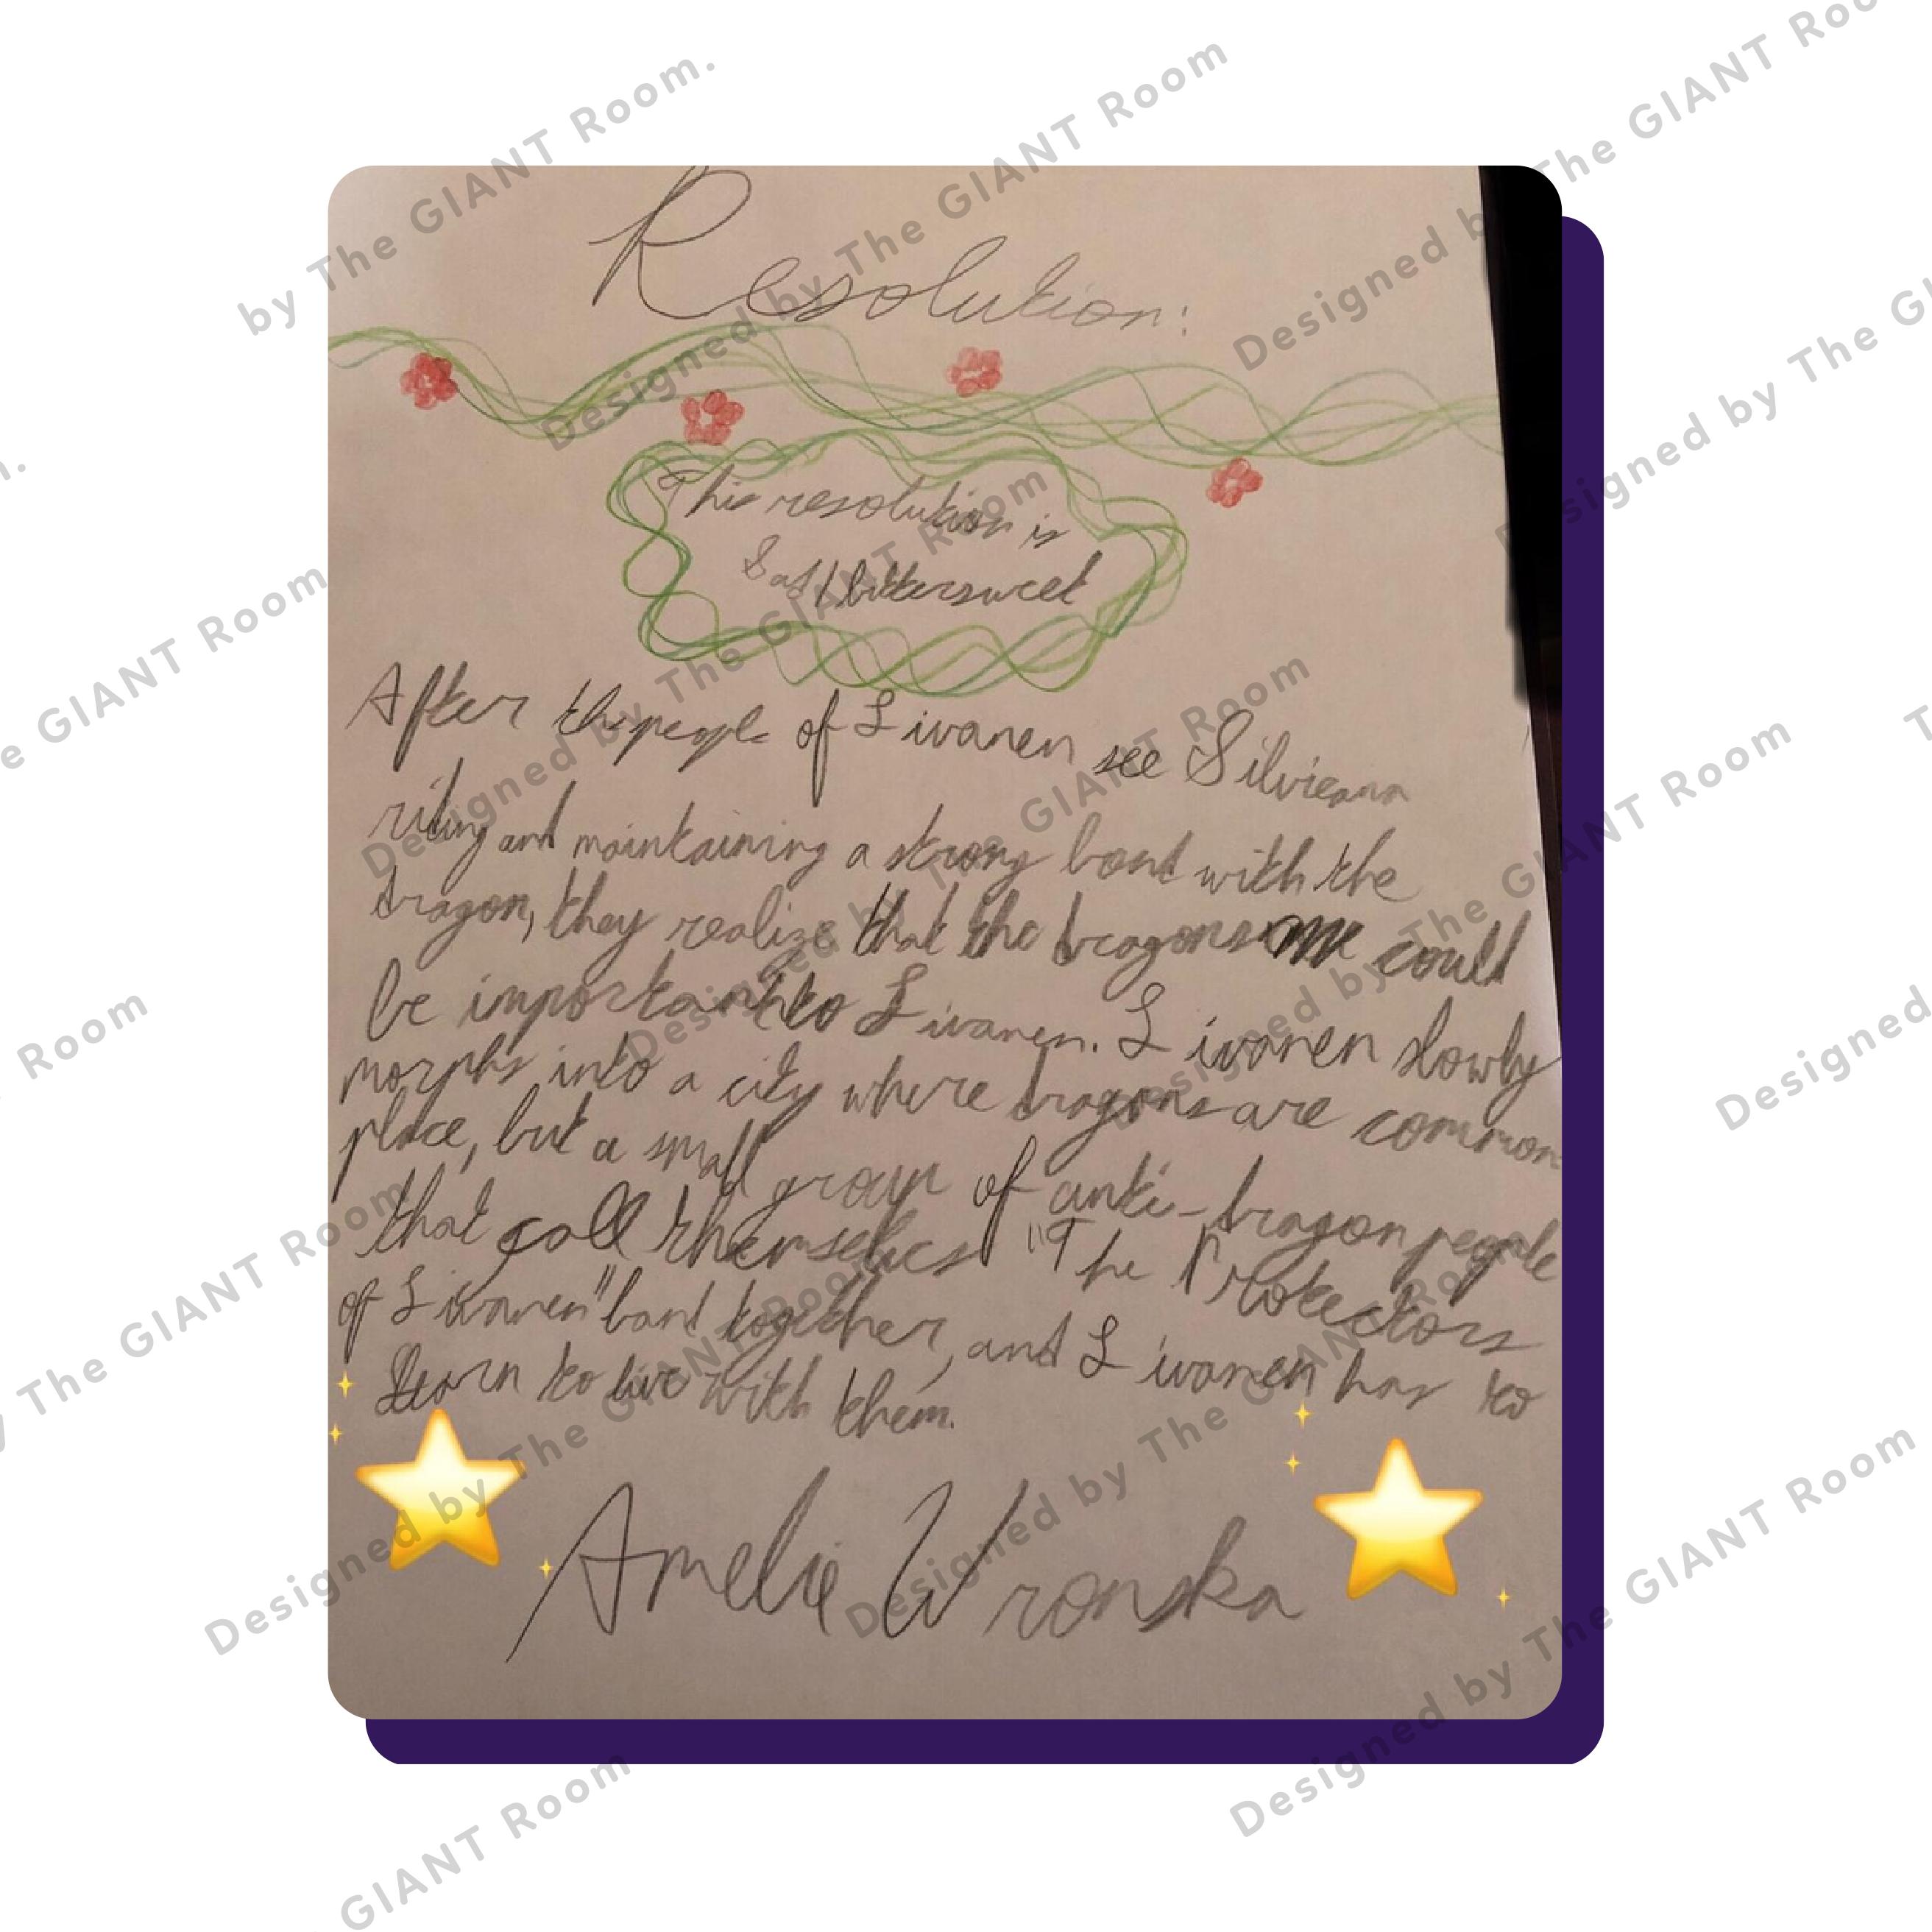 Resolution:
This resolution is
Sad/bittersweet
After the people of Livanen see Silvieana
riding and maintaining a strong bond with the
dragon, they realize that the dragons could
be important to Livanen. Livanen slowly
morphs into a city where dragons are common
place, but a small group of anti-dragon people
that call themselves "The Protectors
of Livanen" band together, and Livanen has to
learn to live with them.
Amelie Wronska
Designed by The GIANT Room.